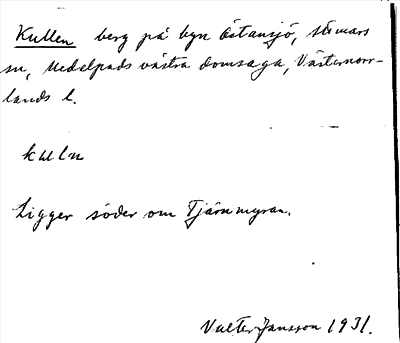 Kullen berg på byn Östansjö, Stömars
sn, Medelpads västra domsaga, Västernorr-
lands l.
kuln
Ligger söder om Tjärnmyran.
Valter Jansson 1931.